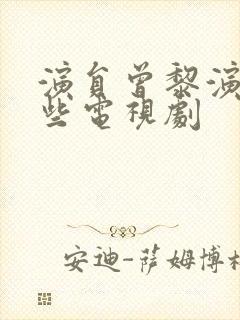 演員曾黎演
些電視劇
安迪-薩姆博格